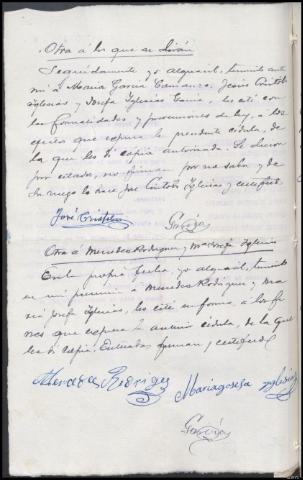 Otra á los que se dirán
Seguidamente yo alguacil, teniendo ante
mi á Maria Garcia Caamaño, Jesus Cristobo
Iglesias y Josefa Iglesias, les cité con
las formalidades y prevenciones de ley, a los
efectos que expresa la precedente cédula, de
la que les dí copia autorizada. Se dieron
por citados, no firman por no saber y de
su ruego lo hace José Cristobo Iglesias y certifico.
José Cristobo
Otra á Mercedes Rodriguez y Mª Josefa Iglesias
En la propia fecha, yo alguacil, teniendo
en mi presencia á Mercedes Rodriguez y Ma
ria Josefa Iglesias, les cité en forma, a los fi
nes que expresa la anterior cédula, de la que
les dí copia. Enteradas firman y certifico.
Mercedes Rodriguez Maria Josefa Iglesias